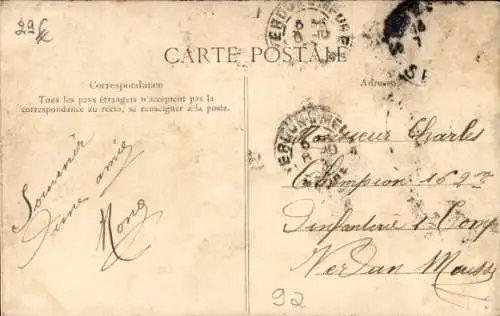 29 €
CARTE POSTALE
Correspondance
Tous les pays étrangers n'acceptent pas la
correspondance au recto, se renseigner à la poste.
Souvenir
d'une amie
Adresse
Monsieur Charles
Champion 162me
d'infanterie 1re Comp
Verdun Meuse
92